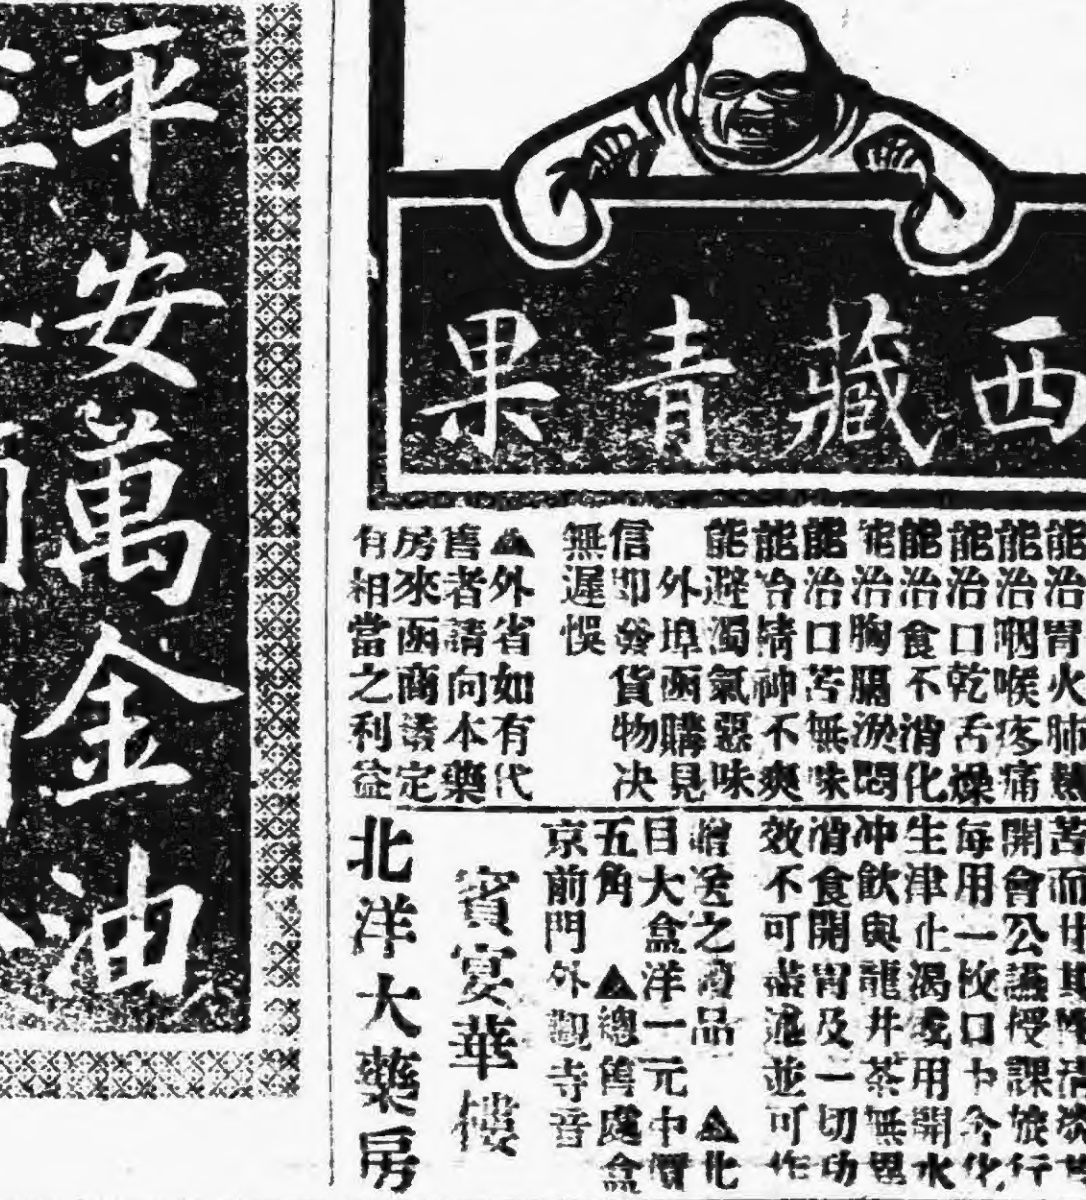 西藏青果
能治胃火肺熱
能治咽喉疼痛
能治口乾舌燥
能治食不消化
能治胸膈淤悶
能治口苦無味
能治精神不爽
能避濁氣惡味
外埠函購見
信即發貨物決
無遲悞
▲外省如有代
售者請向本藥
房來函商議定
有相當之利益
苦而甘其性清
開會公讌授課旅行
每用一枚口中含化
生津止渴或用開水
冲飲與龍井茶無異
消食開胃及一切功
效不可盡述並可作
贈送之禮品 ▲北
目大盒洋一元中價
五角 ▲總售處盒
京前門外觀音寺
賓宴華樓
北洋大藥房
平安萬金油